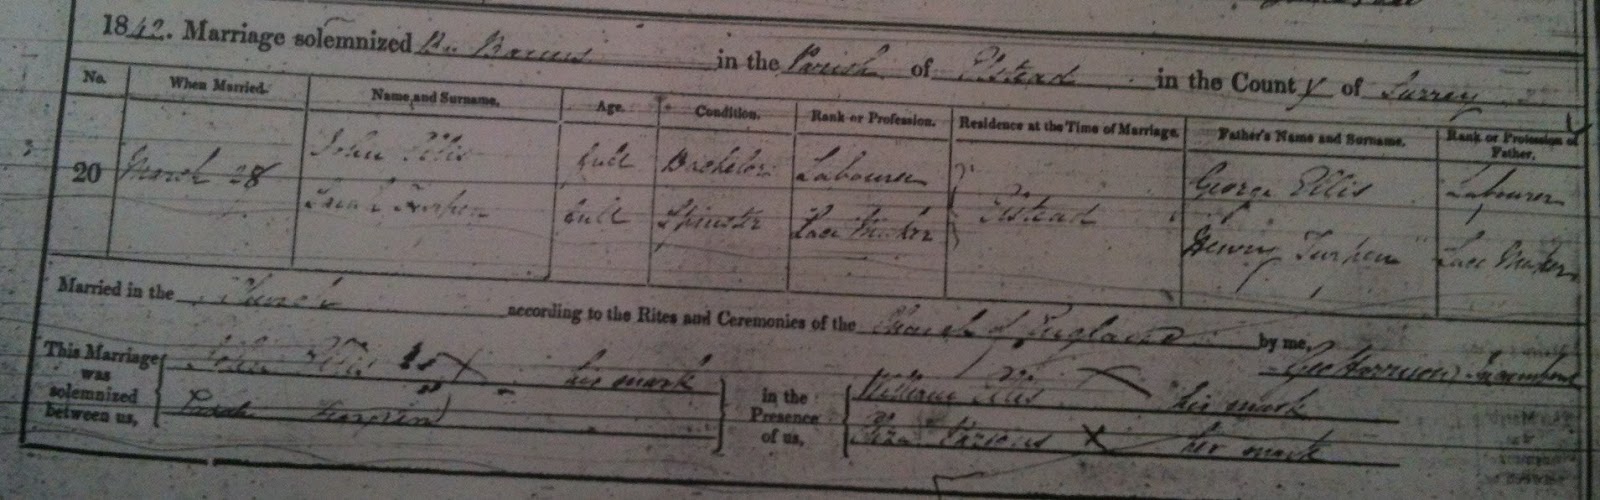 1842. Marriage solemnized By Banns in the Parish of Elstead in the County of Surrey
No. When Married. Name and Surname. Age. Condition. Rank or Profession. Residence at the Time of Marriage. Father's Name and Surname. Rank or Profession of Father.
20 March 28 John Ellis full Bachelor Labourer Elstead George Ellis Labourer
Sarah Turpen full Spinster Lace Maker Henry Turpen Lace Maker
Married in the Church according to the Rites and Ceremonies of the Church of England by me, Geo Harrison Incumbent
This Marriage was solemnized between us, John Ellis his X his mark in the Presence of us, William Ellis X his mark
Sarah Turpin Parsons X her mark